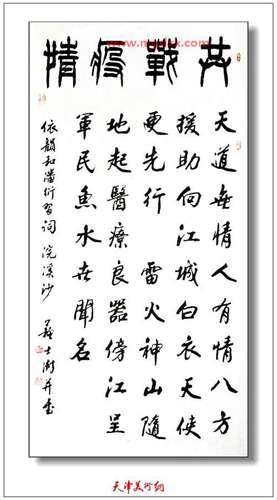 共戰疫情
天道無情人有情八方
援助向江城白衣天使
更先行 雷火神山隨
地起醫療良器傍江呈
軍民魚水世聞名
依韻和潘衍習詞 浣溪沙 蘇士澍并書
天津美术网